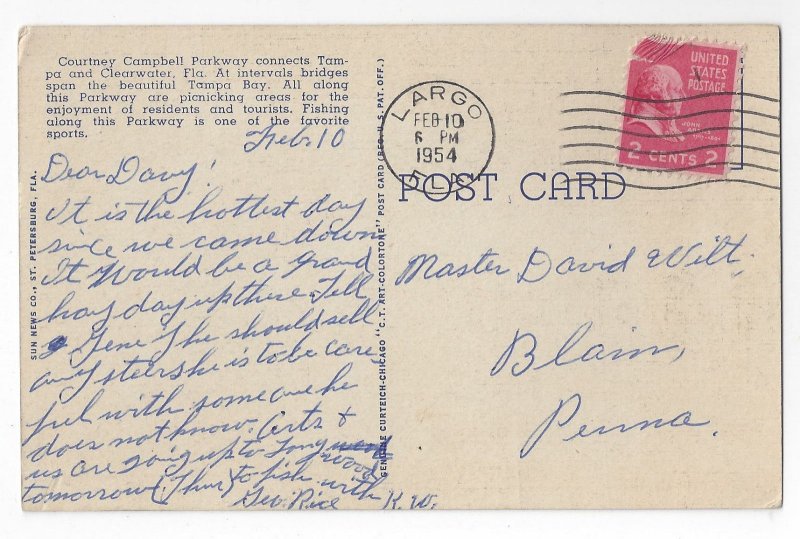 Courtney Campbell Parkway connects Tam-
pa and Clearwater, Fla. At intervals bridges
span the beautiful Tampa Bay. All along
this Parkway are picnicking areas for the
enjoyment of residents and tourists. Fishing
along this Parkway is one of the favorite
sports.
Feb. 10
Dear Davy!
It is the hottest day
since we came down
It would be a grand
hay day up there. Tell
Gene if he should sell
any steers he is to be care-
ful with someone he
does not know. Arts &
us are going up to Long
wood
tomorrow (Thur) to fish with
Geo. Rice K. W.
SUN NEWS CO., ST. PETERSBURG, FLA.
GENUINE CURTEICH-CHICAGO "C.T. ART-COLORTONE" POST CARD (REG. U.S. PAT. OFF.)
LARGO
FEB 10
6 PM
1954
FLA
UNITED
STATES
POSTAGE
JOHN
2 CENTS 2
POST CARD
Master David Wilt,
Blain,
Penna.